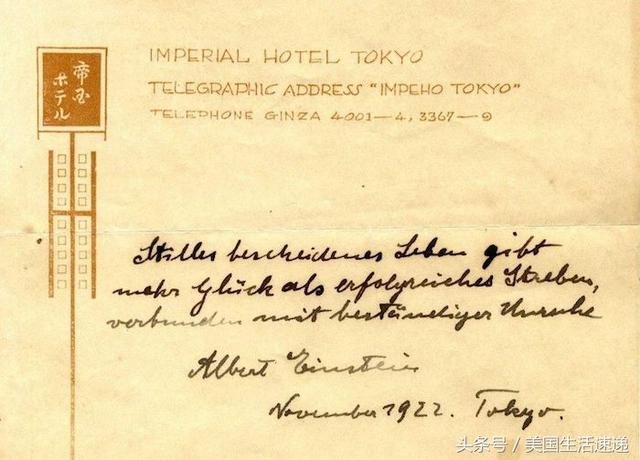 帝国
ホテル
IMPERIAL HOTEL TOKYO
TELEGRAPHIC ADDRESS "IMPEHO TOKYO"
TELEPHONE GINZA 4001—4, 3367—9
Stilles bescheidenes Leben gibt
mehr Glück als erfolgreiches Streben,
verbunden mit beständiger Unruhe
Albert Einstein
November 1922. Tokyo.
头条号 / 美国生活速递